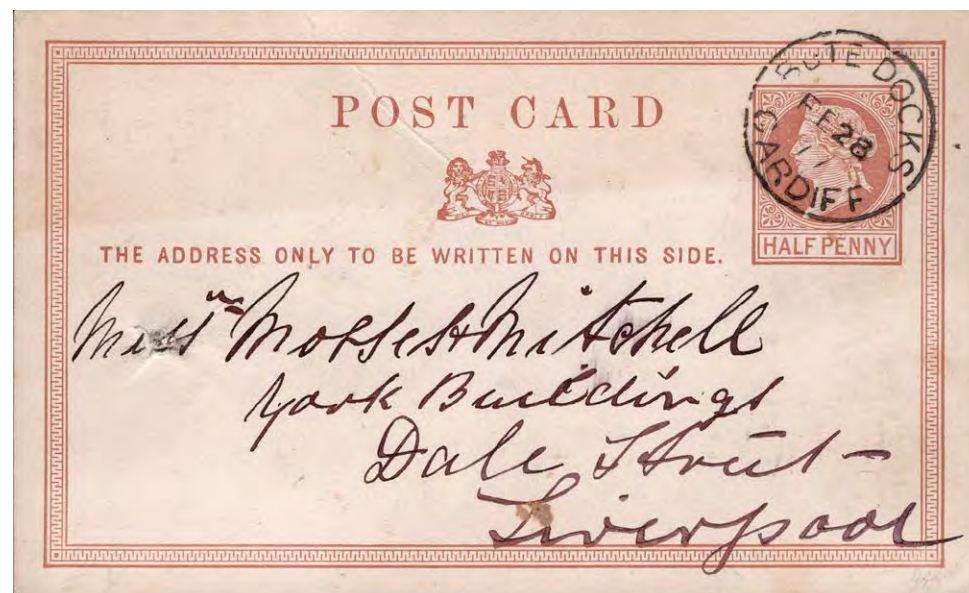 POST CARD
BUTE DOCKS
CARDIFF
FE 28
77
THE ADDRESS ONLY TO BE WRITTEN ON THIS SIDE.
HALFPENNY
Messrs Mosses & Mitchell
York Buildings
Dale Street
Liverpool